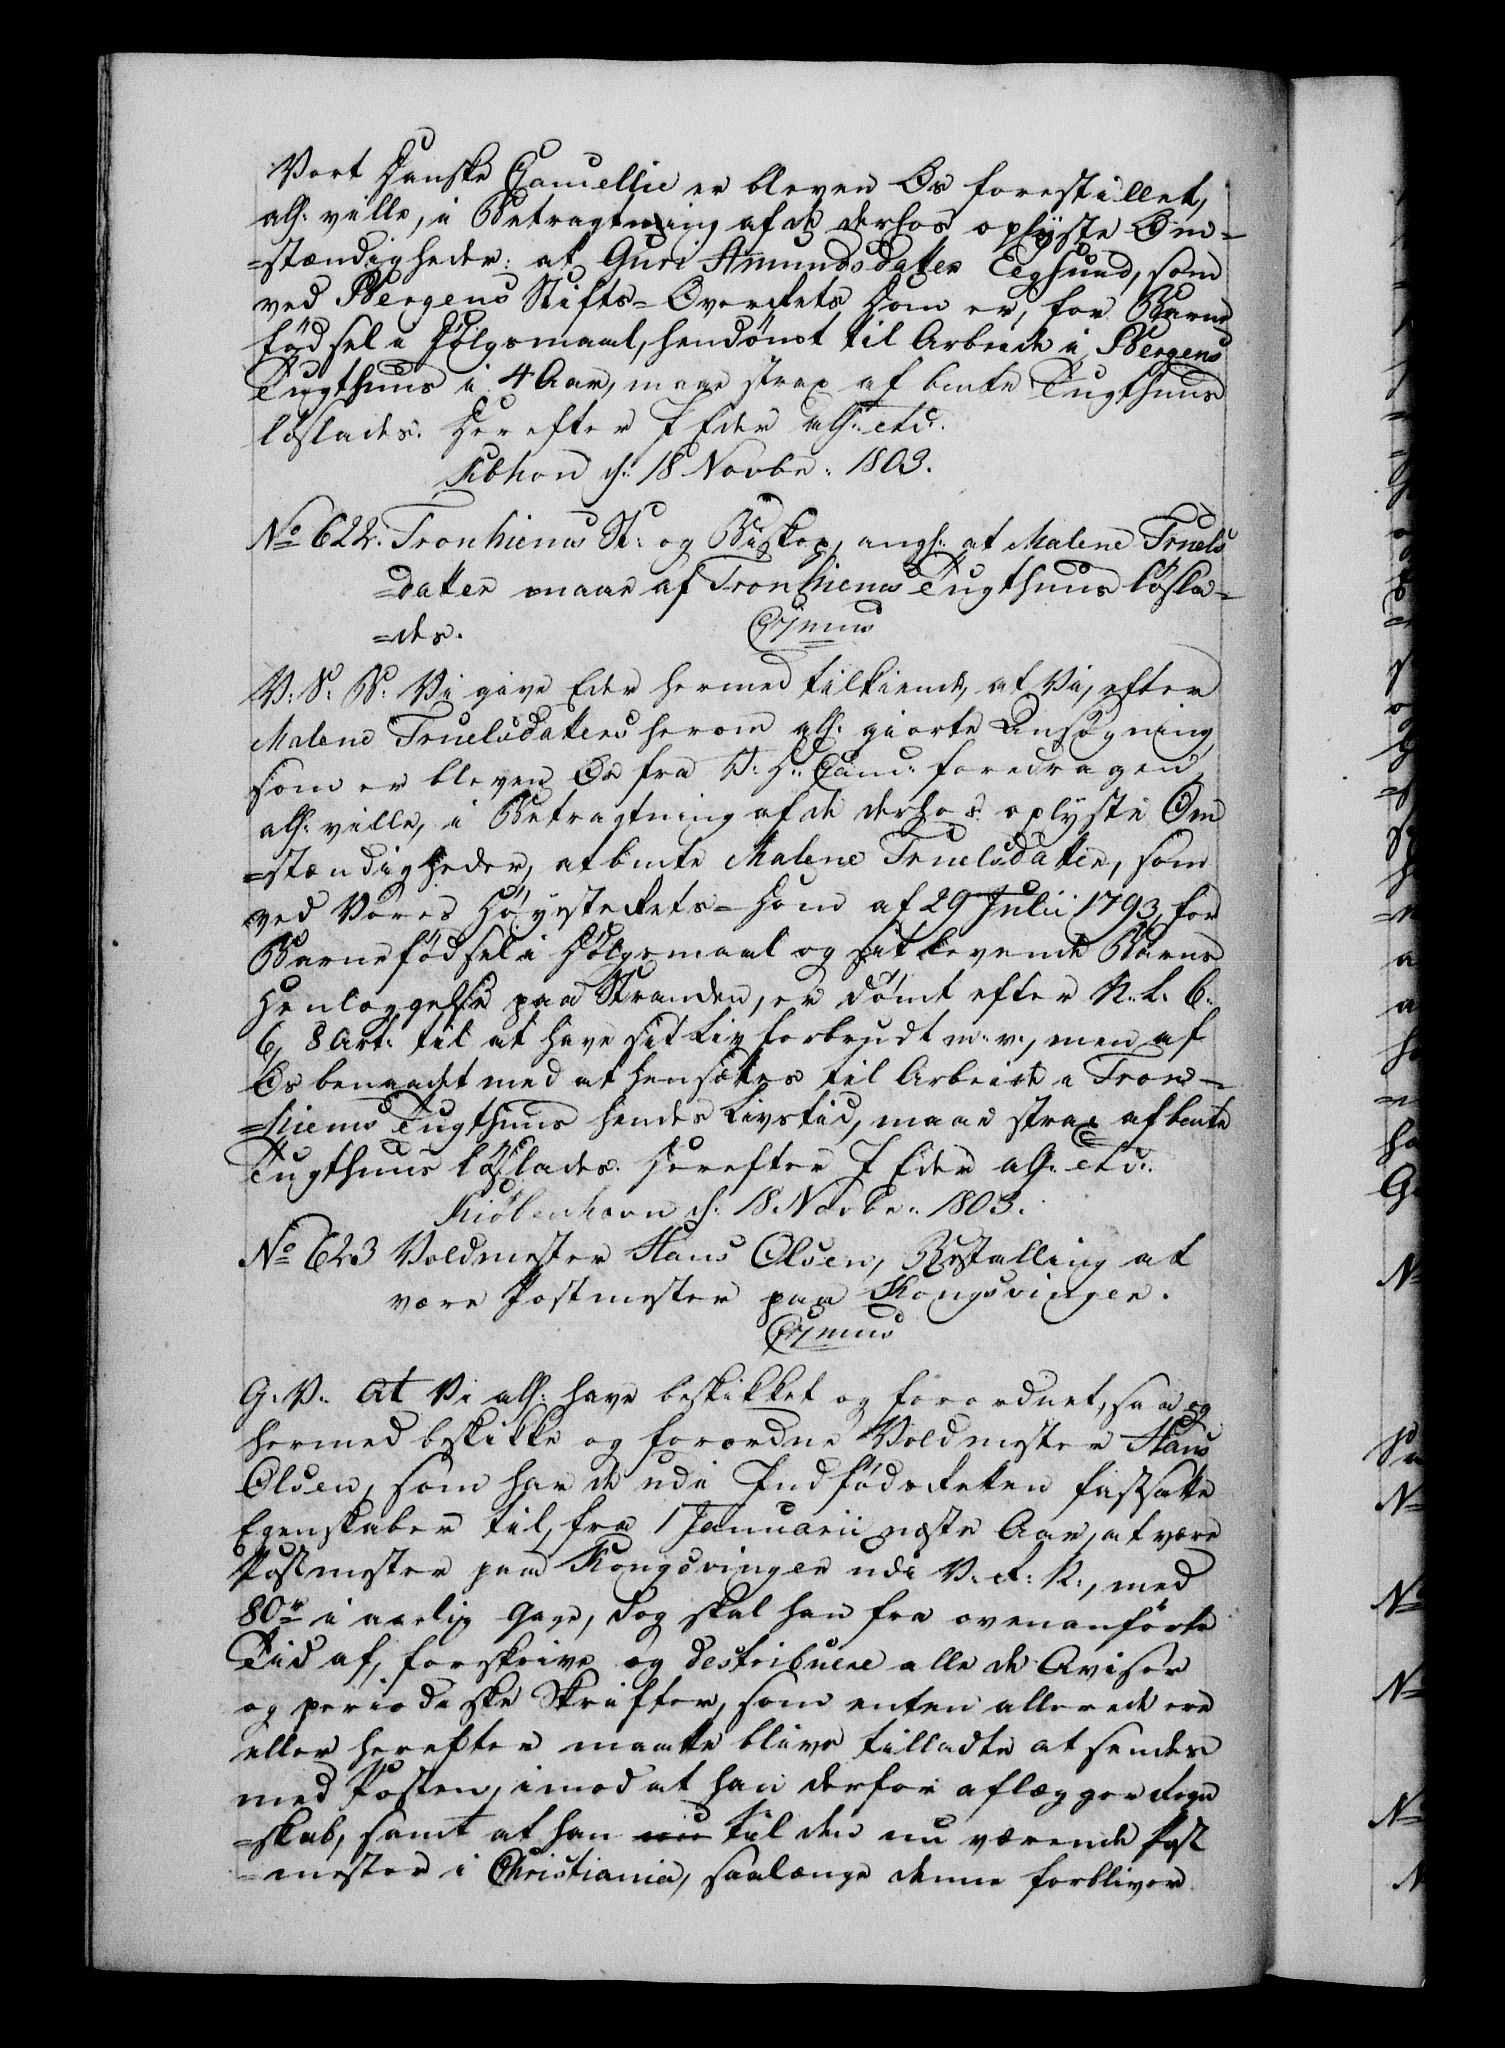 Vort Danske Cancellie er bleven Os forestillet,
all: ville, i Betragtning af de derhos oplyste Om-
=stændigheder: at Guri Amundsdatter Eegsund, som
ved Bergens Stifts-Overrets Dom er, for Barne
fødsel i Dølgsmaal, hendømt til Arbeide i Bergens
Tugthuus i 4 Aar, maae strax af bemte Tugthuus
løslades. Derefter I Eder all: etc:.
Kbhvn d: 18 Novbr: 1803.
No 622. Tronhiems St: og Biskop, angl: at Malene Truels
=datter maae af Tronhiems Tugthuus løsla-
=des.
C 7mus
V: S: B: Vi give Eder hermed tilkiende, at Vi, efter
Malene Truelsdatters herom all: giorte Ansøgning,
som er bleven Os fra V: D: Canc: foredragen,
all: ville, i Betragtning af de derhos oplyste Om
=stændigheder, at bemte Malene Truelsdatter, som
ved Vores Høyesterets-Dom af 29 Julii 1793, for
Barnefødsel i Dølgsmaal og sit levende Barns
Henlæggelse paa Stranden, er dømt efter N: L: 6:
6, 8 Art: til at have sit Liv forbrudt m: v:, men af
Os benaadet med at hensættes til Arbeide i Tron-
=hiems Tugthuus hendes Livstid, maae strax af bemte
Tugthuus løslades. Derefter I Eder all: etc:.
Kiøbenhavn d: 18 Novbr: 1803.
No 623 Voldmester Hans Olsen, Bestalling at
være Postmester paa Kongsvinger.
C 7mus
G: V: At Vi all: have beskikket og forordnet, saa og
hermed beskikke og forordne Voldmester Hans
Olsen, som har de udi Indfødsretten fastsatte
Egenskaber til, fra 1 Januarii næste Aar, at være
Postmester paa Kongsvinger udi V: R: N:, med
80 rd i aarlig Gage, dog skal han fra ovenanførte
Tid af, forskrive og destribuere alle de Aviser
og periodiske Skrifter, som enten allerede ere
eller herefter maatte blive tilladte at sendes
med Posten, imod at han derfor aflægger Regn
=skab, samt at han til den nu værende Post
=mester i Christiania, saalænge denne forbliver